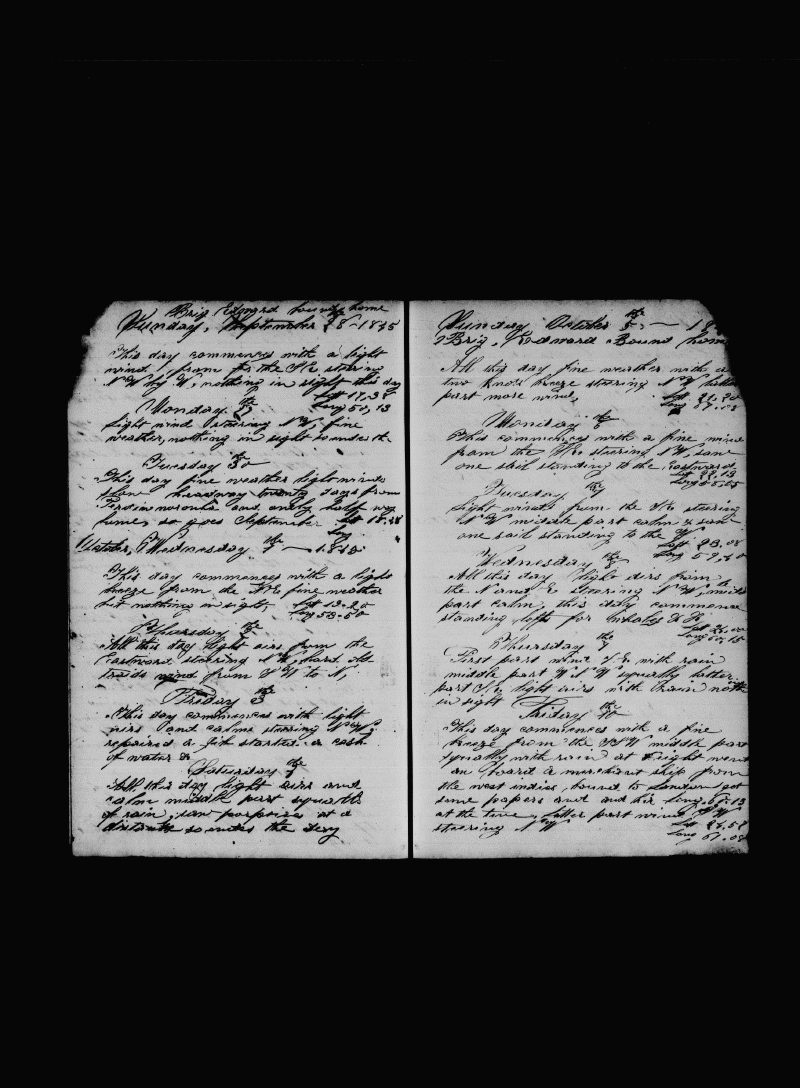 Brig Edward bound home
Sunday, September 28 - 1845
This day commences with a light
wind, from the NE, steering
N W by W, nothing in sight this day
Lat 17,38
Monday 29th Long 50,13
Light wind steering N W, fine
weather, nothing in sight so ends the
Tuesday 30th
This day fine weather light winds
slow headway twenty days from
and only half way
home so goes September Lat 18.28
Long
October, Wednesday 1th — 1845
This day commences with a light
breeze from the NE fine weather
but nothing in sight Lat 19-20
Long 53-50
Thursday 2th
All this day light airs from the
Eastward steering N W, hard
wind from to N,
Friday 3th
This day commences with light
airs and calms steering N W,
repaired a jib started a cask
of water &
Saturday 4th
All this day light airs and
calm middle part squalls
of rain, saw porpoises at a
distance so ends the day
Sunday October 5th — 18
Brig, Edward Bound home
All this day fine weather with a
two knots breeze steering N W latter
part more wind, Lat 21.20
Long
Monday 6th
This commences with a fine wind
from the NE steering N W, saw
one sail standing to the Eastward
Lat 22,13
Tuesday 7th Long
Light winds from the NE steering
N W middle part calm & saw
one sail standing to the W
Lat 23.08
Wednesday 8th Long 59,
All this day light airs from
the N and E steering N W, middle
part calm, this day commence
standing lofts for Whales &c
Lat
Thursday 9th Long 60,15
First part wind S E with rain
middle part squally latter
part light airs with rain
in sight
Friday 10th
This day commences with a fine
breeze from the SW middle part
squally with rain at eight went
on board a merchant ship from
the west indies, bound to London got
some papers and his Long. 61-13
at the time, latter part wind SW
steering N W Lat 27,57
Long 61.08